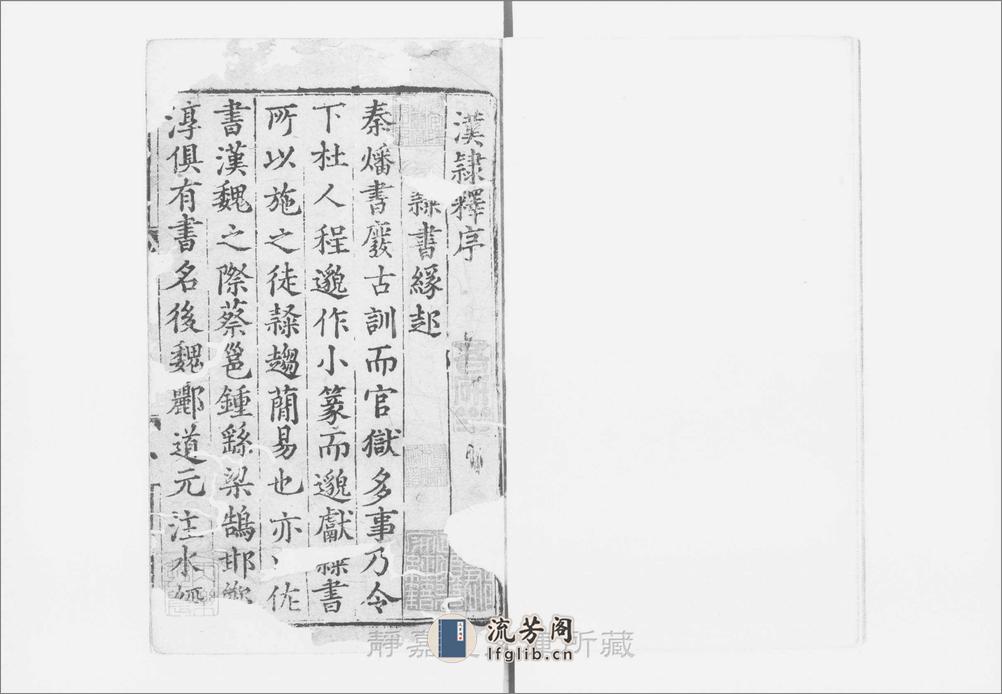 漢隷釋序
隷書緣起
秦燔書廢古訓而官獄多事乃令
下杜人程邈作小篆而邈獻隷書
所以施之徒隷趨簡易也亦以佐
書漢魏之際蔡邕鍾繇梁鵠邯鄲
淳俱有書名後魏酈道元注水經
靜嘉 所藏
流芳阁
lfglib.cn